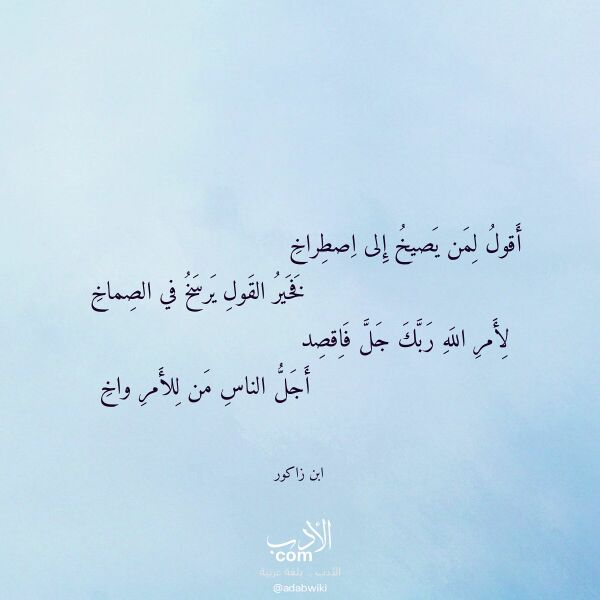 أَقولُ لِمَن يَصيخُ إِلى اِصطِراخِ
فَخَيرُ القَولِ يَرسَخُ في الصِماخِ
لِأَمرِ اللَهِ رَبَّكَ جَلَّ فَاِقصِد
أَجَلُّ الناسِ مَن لِلأَمرِ واخِ
ابن زاكور
الأدب
com
الأدب .. بلغة عربية
@adabwiki